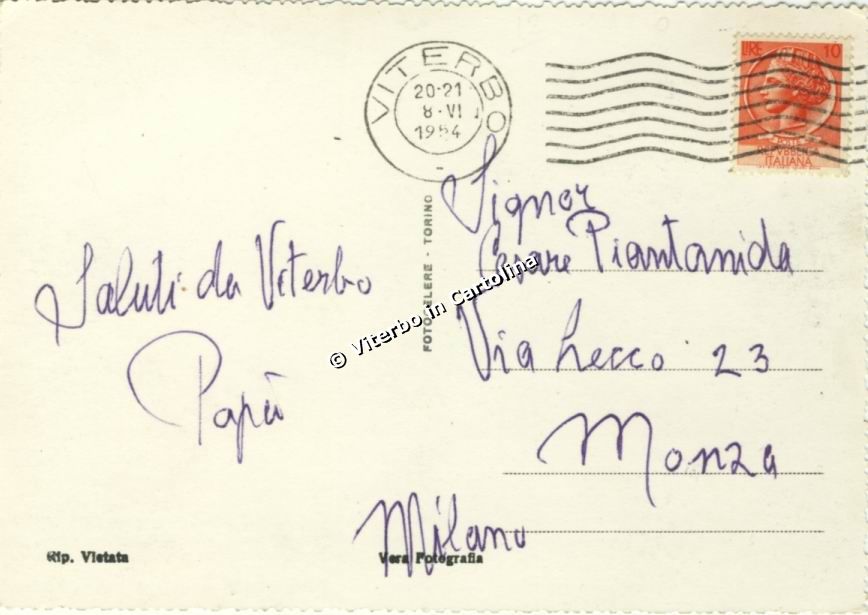 VITERBO
20·21
8·VI
1954
LIRE 10
POSTE
REPVBBLICA
ITALIANA
Saluti da Viterbo
Papà
FOTOCELERE - TORINO
© Viterbo in Cartolina
Signor
Cesare Piantanida
Via Lecco 23
Monza
Milano
Rip. Vietata
Vera Fotografia